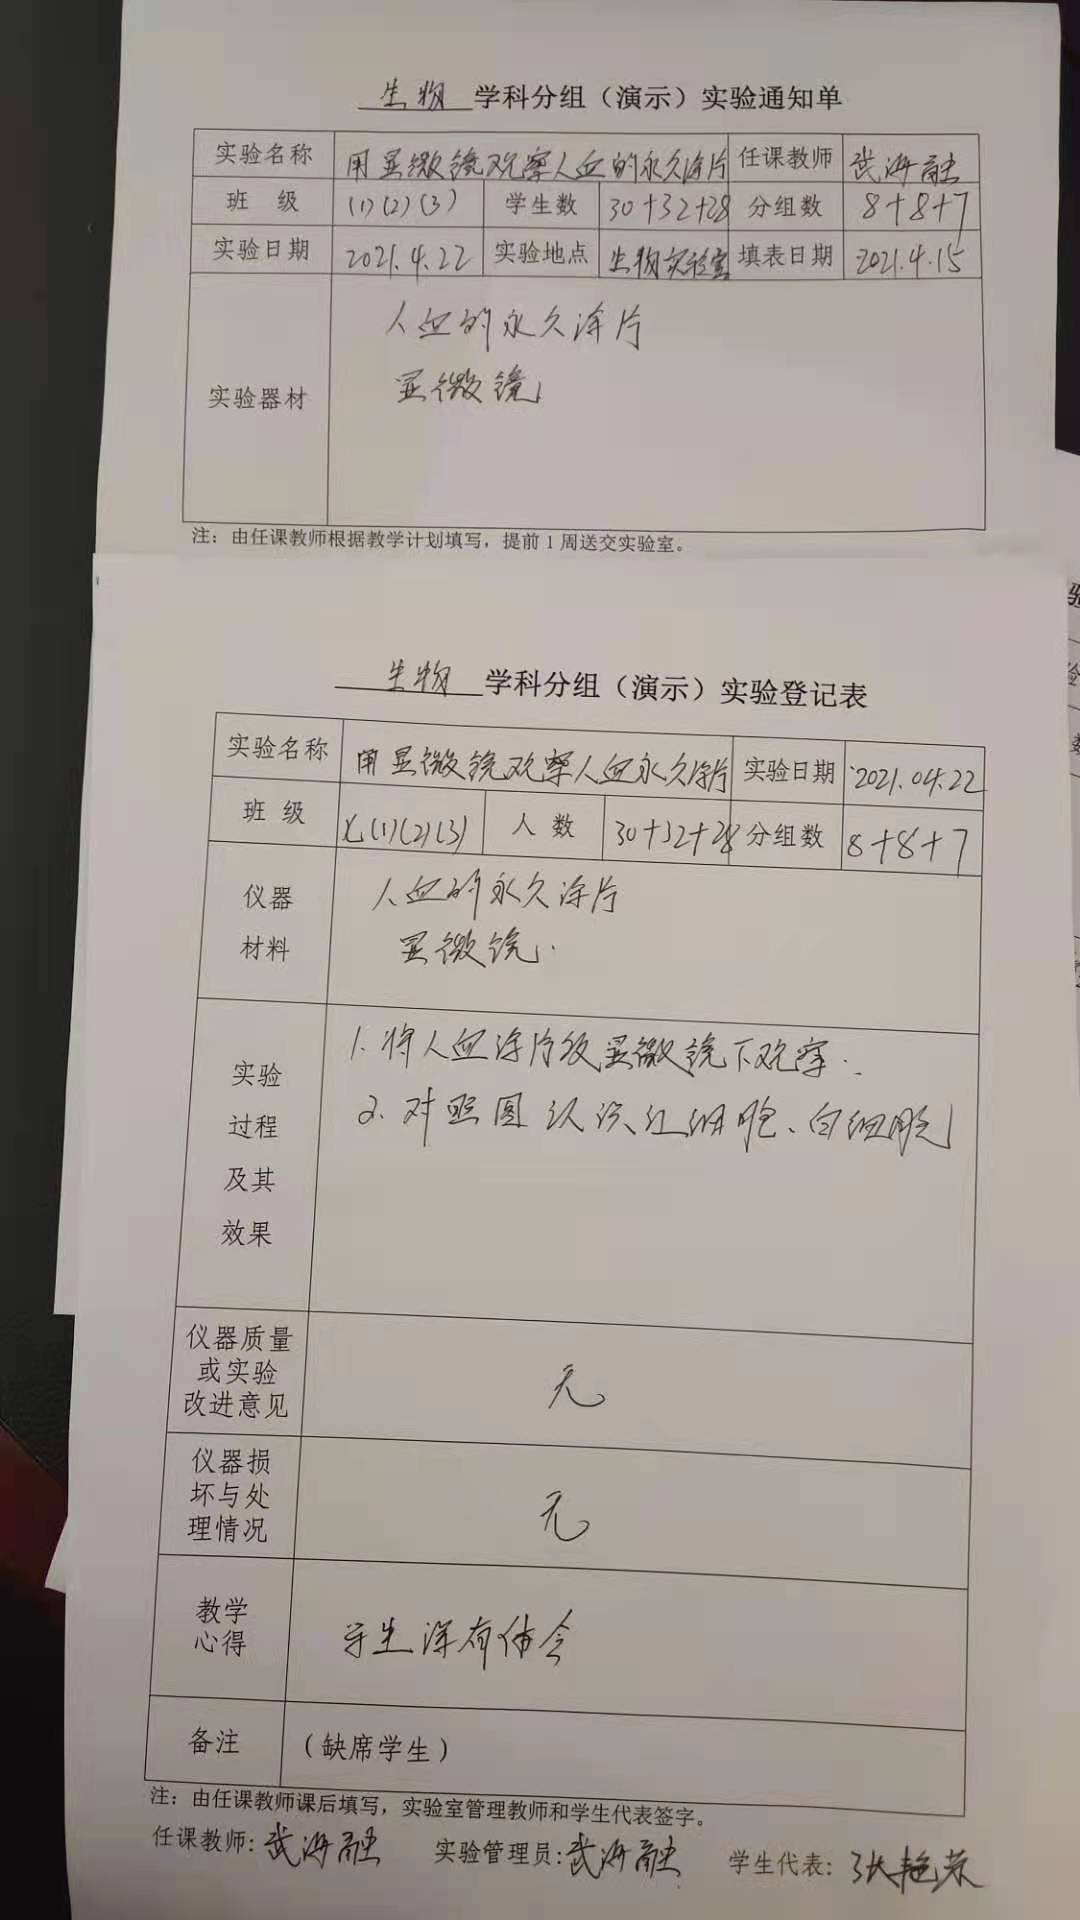 生物 学科分组（演示）实验通知单
实验名称 用显微镜观察人血的永久涂片 任课教师 武海融
班 级 (1)(2)(3) 学生数 30+32+28 分组数 8+8+7
实验日期 2021.4.22 实验地点 生物实验室 填表日期 2021.4.15
人血的永久涂片
显微镜
实验器材
注：由任课教师根据教学计划填写，提前1周送交实验室。
生物 学科分组（演示）实验登记表
实验名称 用显微镜观察人血永久涂片 实验日期 2021.04.22
班 级 (1)(2)(3) 人 数 30+32+28 分组数 8+8+7
仪器
材料
人血的永久涂片
显微镜.
实验
过程
及其
效果
1.将人血涂片 显微镜下观察.
2.对照图认识红细胞、白细胞
仪器质量
或实验
改进意见
无
仪器损
坏与处
理情况
无
教学
心得
学生深有体会
备注 （缺席学生）
注：由任课教师课后填写，实验室管理教师和学生代表签字。
任课教师：武海融 实验管理员：武海融 学生代表：张艳荣